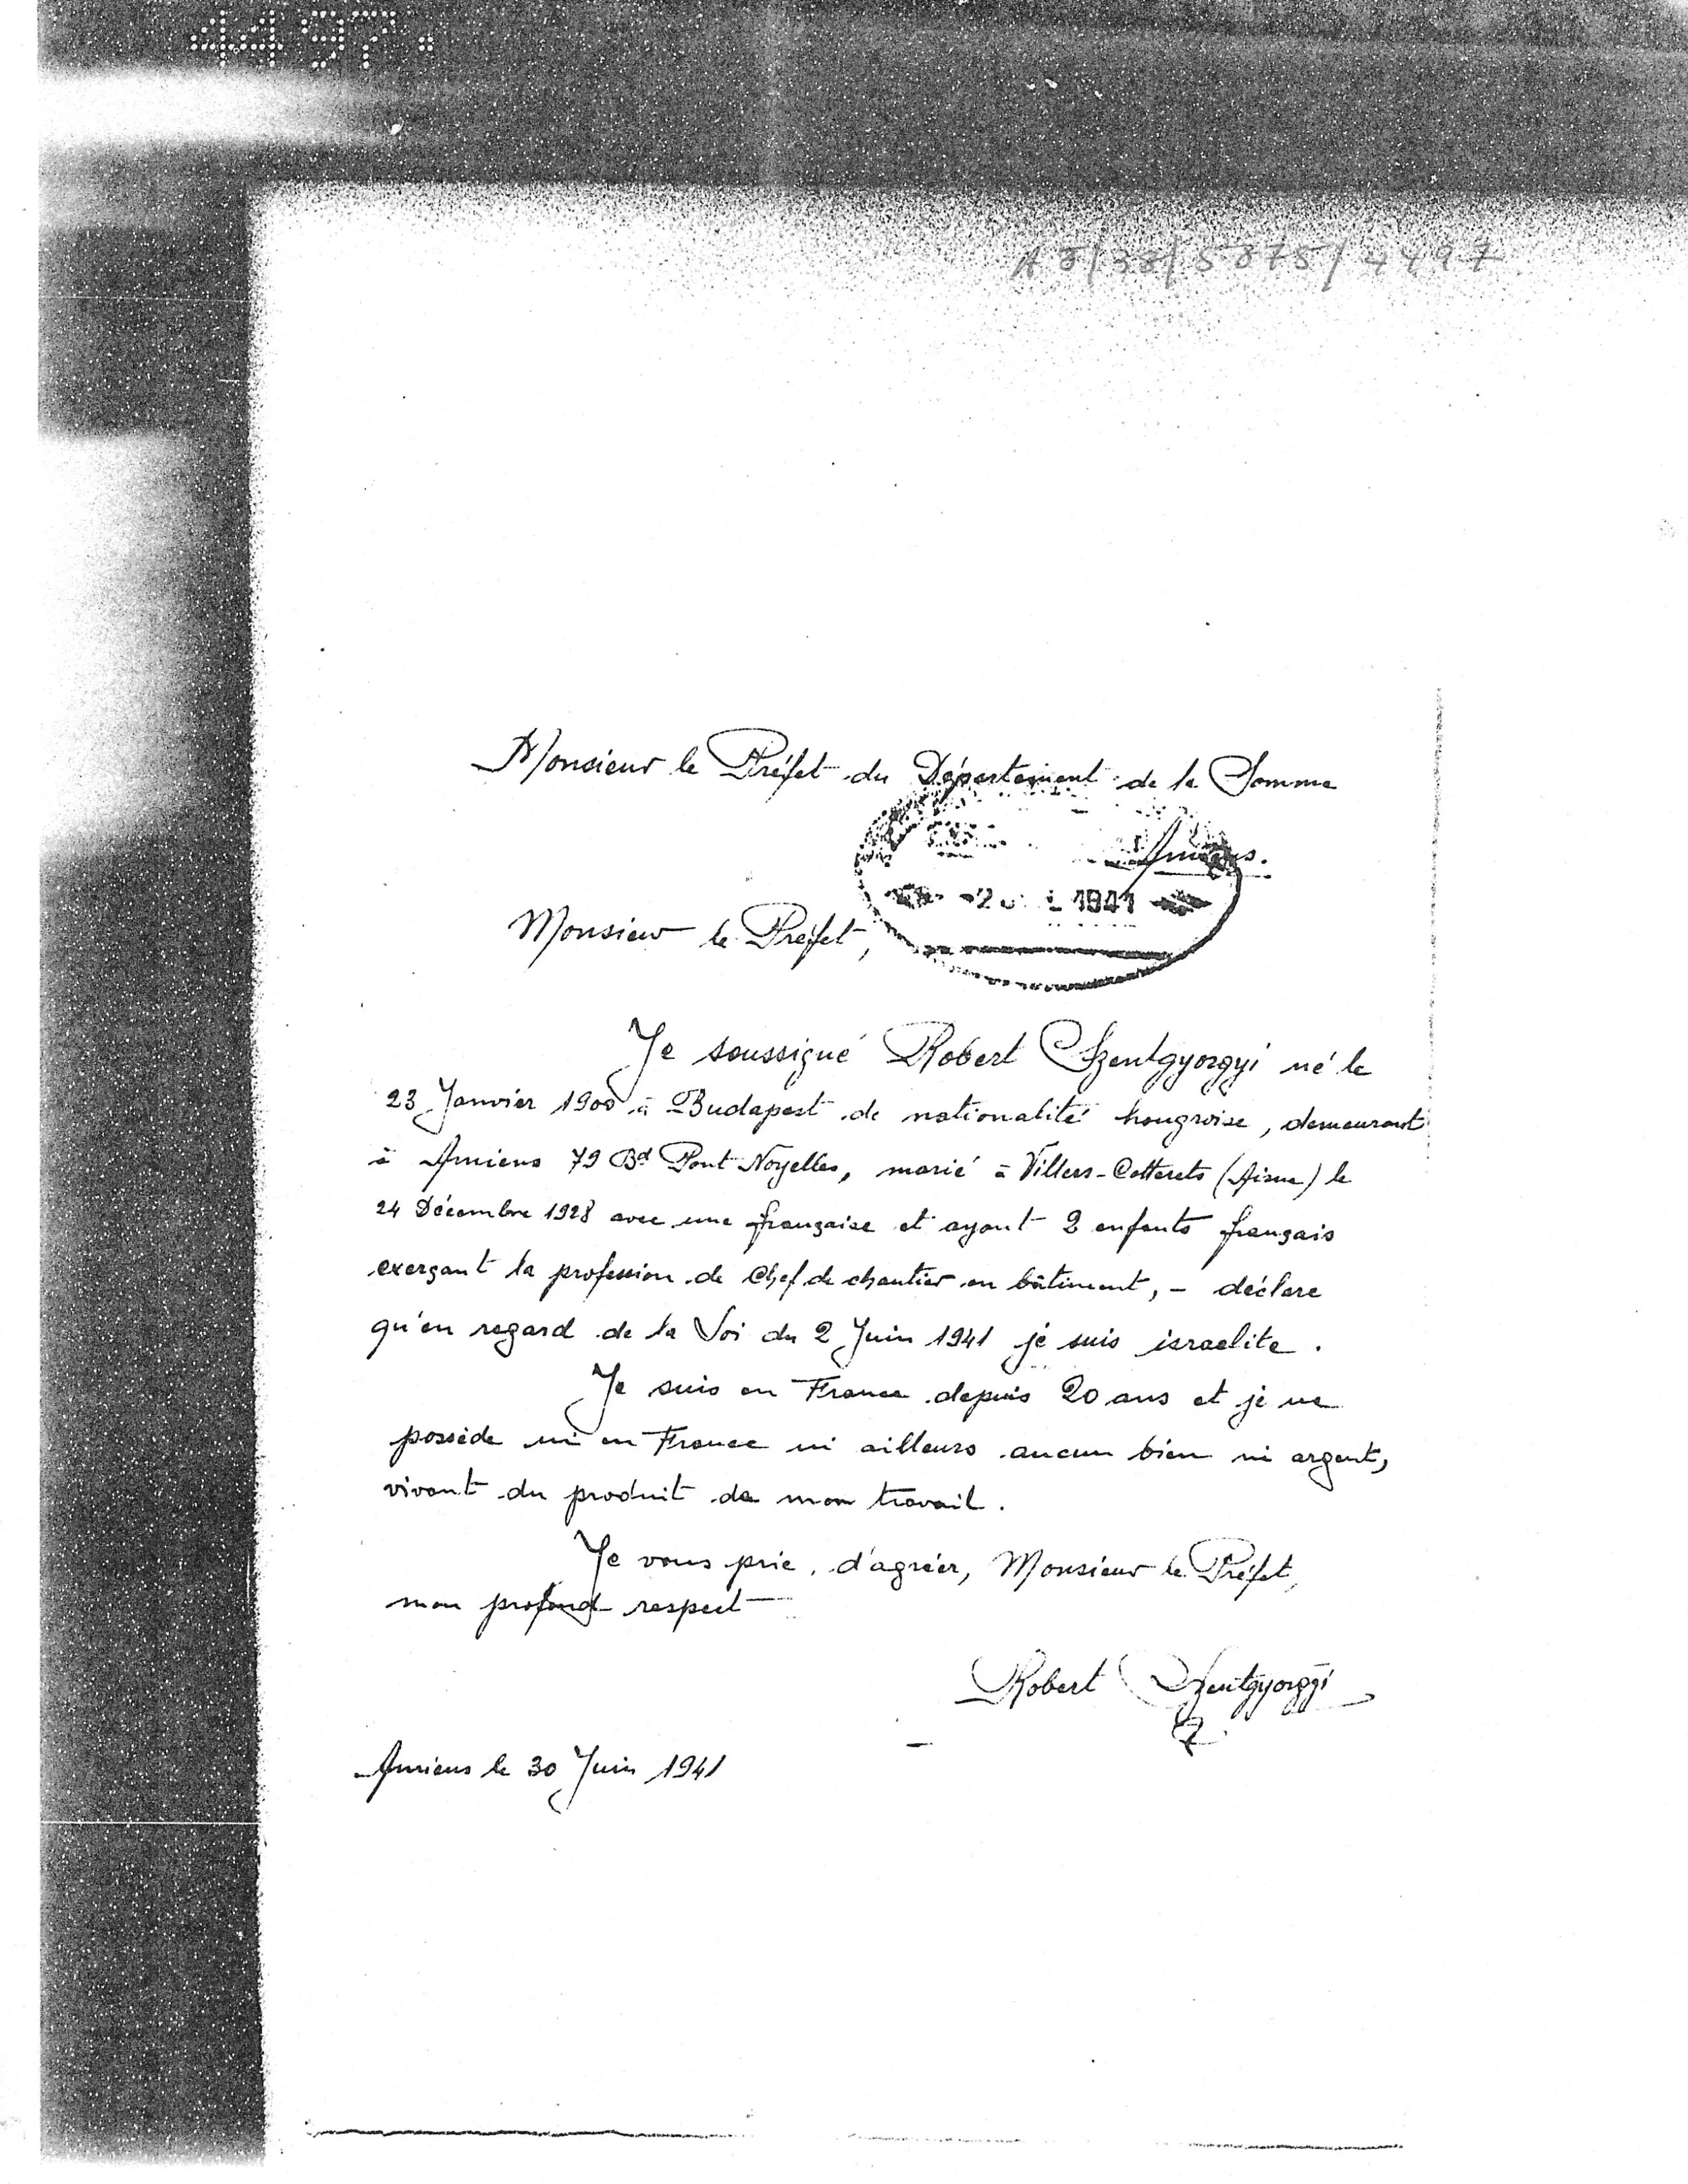 4497
A3/38/5875/4497
Monsieur le Préfet du Département de la Somme
Amiens.
-2 1941
Monsieur le Préfet,
Je soussigné Robert Szentgyorgyi né le
23 Janvier 1900 à Budapest de nationalité hongroise, demeurant
à Amiens 79 Bd Pont Noyelles, marié à Villers-Cotterets (Aisne) le
24 Décembre 1928 avec une française et ayant 2 enfants français
exerçant la profession de Chef de chantier en bâtiment, - déclare
qu'en regard de la Loi du 2 Juin 1941 je suis israelite.
Je suis en France depuis 20 ans et je ne
possède ni en France ni ailleurs aucun bien ni argent,
vivant du produit de mon travail.
Je vous prie, d'agréer, Monsieur le Préfet,
mon profond respect
Robert Szentgyorgyi
Amiens le 30 Juin 1941